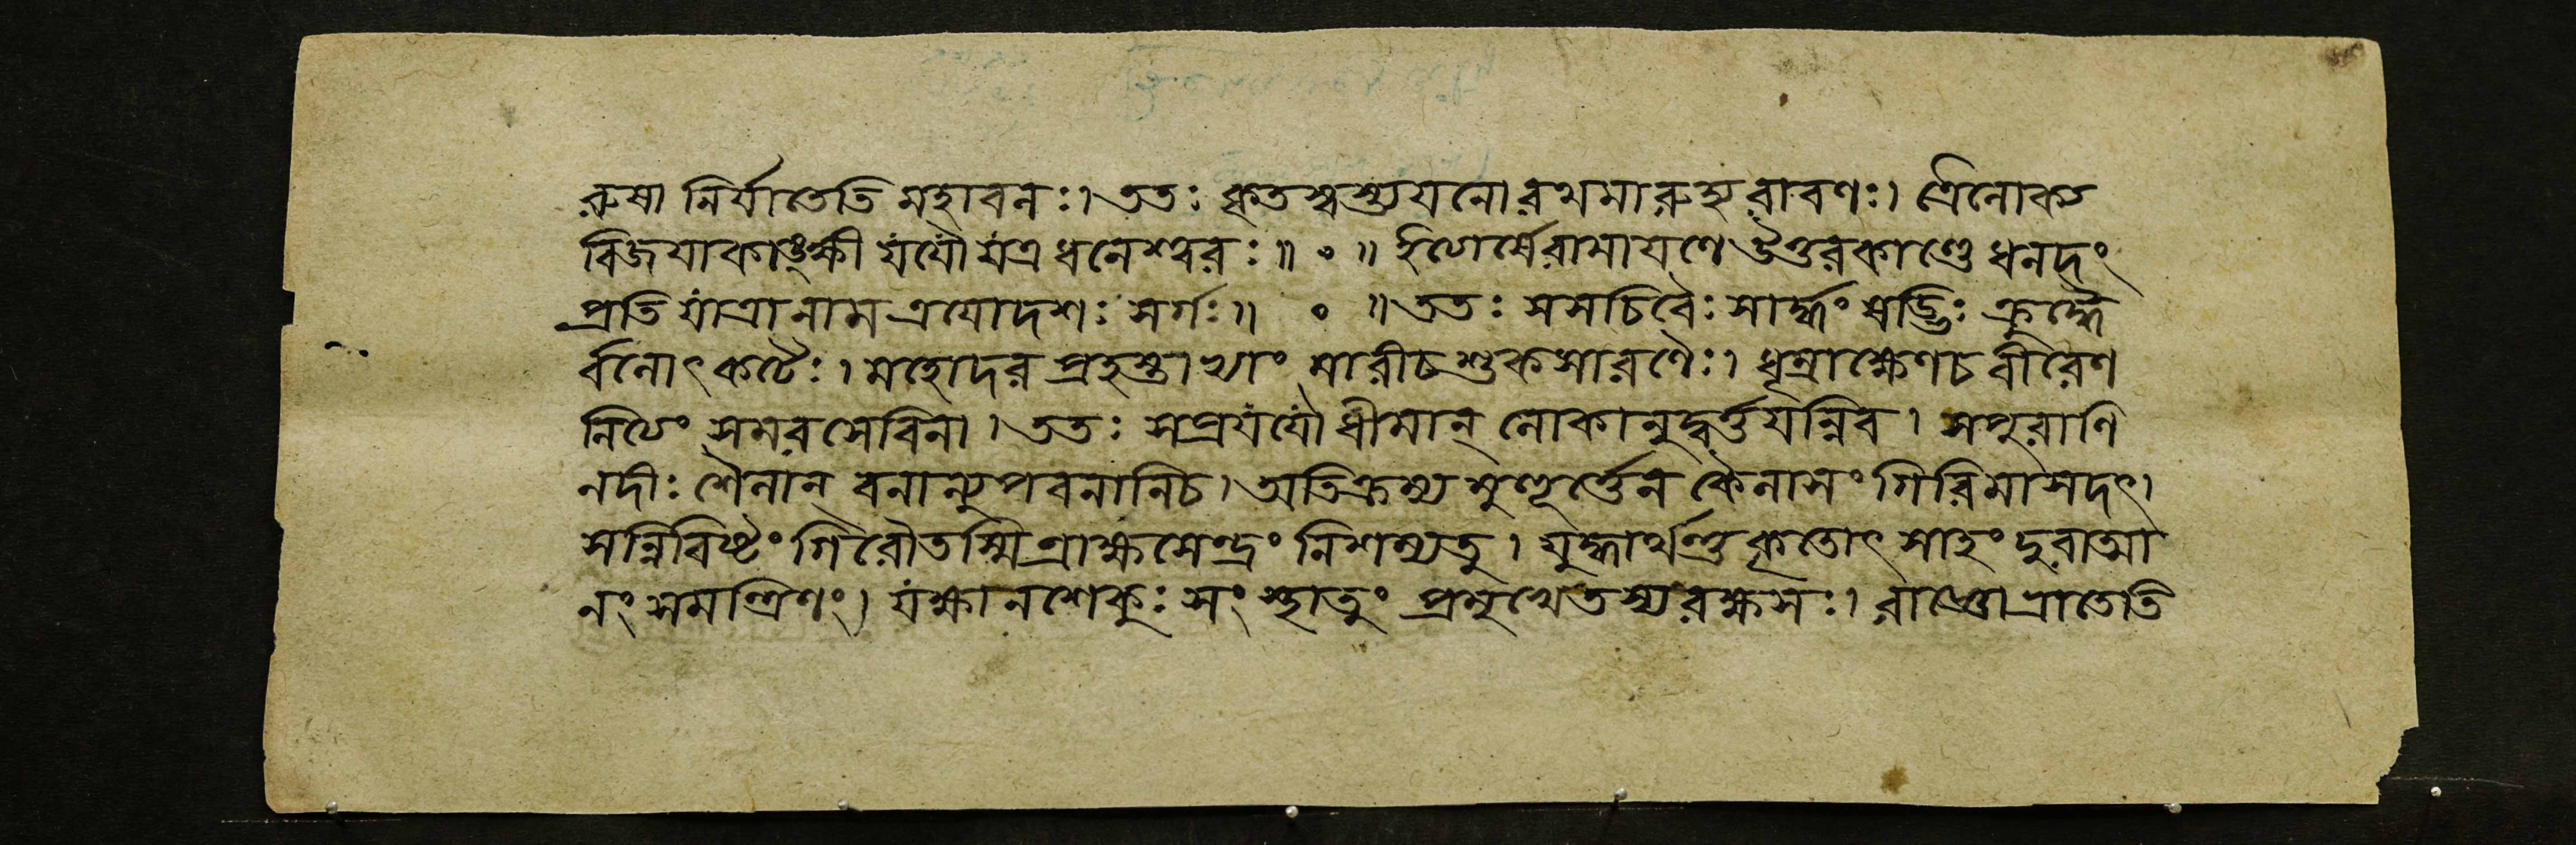 রুষা নির্যাতেতি মহাবলঃ। ততঃ কৃতস্বস্ত্যয়নো রথমারুহ্য রাবণঃ। ত্রৈলোক্য
বিজয়াকাঙ্ক্ষী যযৌ যত্র ধনেশ্বরঃ॥ ০ ॥ ইত্যার্ষেরামায়ণে উত্তরকাণ্ডে ধনদং
প্রতি যাত্রানাম ত্রয়োদশঃ সর্গঃ॥ ০ ॥ ততঃ সসচিবৈঃ সার্দ্ধং ষড্ভিঃ ক্রুদ্ধৈ
র্বলোৎকটৈঃ। মহোদর প্রহস্তাভ্যাং মারীচশুকসারণৈঃ। ধূম্রাক্ষেণচ বীরেণ
নিত্যং সমরসেবিনা। ততঃ সপ্রযযৌ ধীমান্ লোকানুদ্বর্ত্তয়ন্নিব। সপুরাণি
নদীঃ শৈলান্ বনান্যুপবনানিচ। অতিক্রম্য মুহূর্ত্তেন কৈলাসং গিরিমাসদৎ।
সন্নিবিষ্টং গিরৌতস্মিন্রাক্ষসেন্দ্রং নিশম্যতু। যুদ্ধার্থন্তু কৃতোৎসাহং দুরাত্মা
নং সমন্ত্রিণং। যক্ষা নশেকুঃ সংস্থাতুং প্রমুখেতস্যরক্ষসঃ। রাজ্ঞোভ্রাতেতি